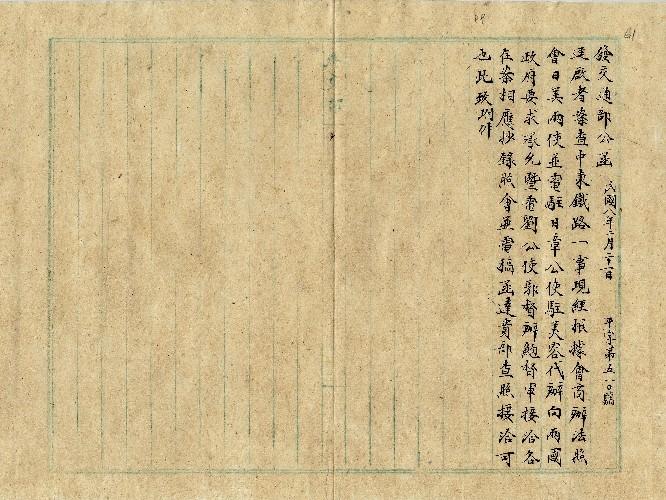 61
發交通部公函 民國八年二月二十一日 平字第五一〇號
逕啟者案查中東鐵路一事現經根據會商辦法照
會日美兩使並電駐日章公使駐美容代辦向兩國
政府要求承允暨電劉公使郭督辦鮑督軍接洽各
在案相應抄錄照會並電稿函達貴部查照接洽可
也此致附件